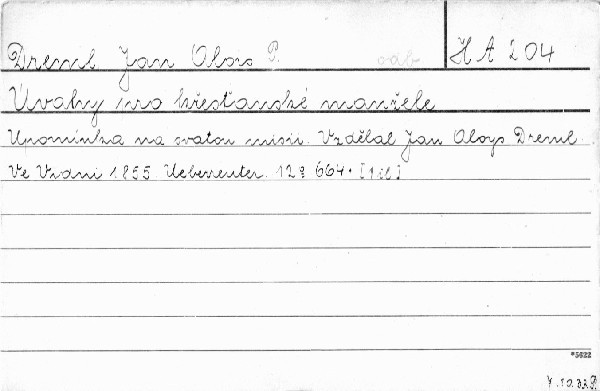 Dreml Jan Alois P. odb. H A 204
Úvahy pro křesťanské manžele
Upomínka na svatou misii. Vzdělal Jan Aloys Dreml.
Ve Vídni 1855. Ueberreuter. 12° 664. [1 sl]
*5622